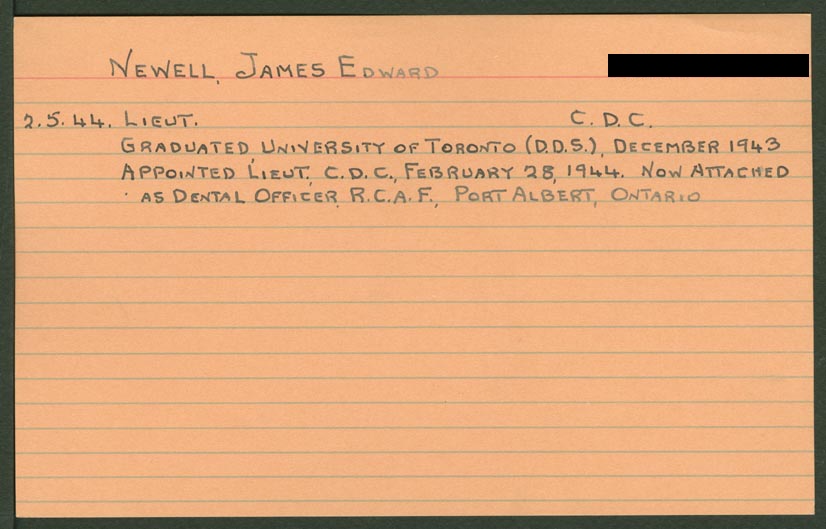 NEWELL, JAMES EDWARD
2.5.44. LIEUT. C.D.C.
GRADUATED UNIVERSITY OF TORONTO (D.D.S.), DECEMBER 1943
APPOINTED LIEUT. C.D.C., FEBRUARY 28, 1944. NOW ATTACHED
AS DENTAL OFFICER R.C.A.F., PORT ALBERT, ONTARIO